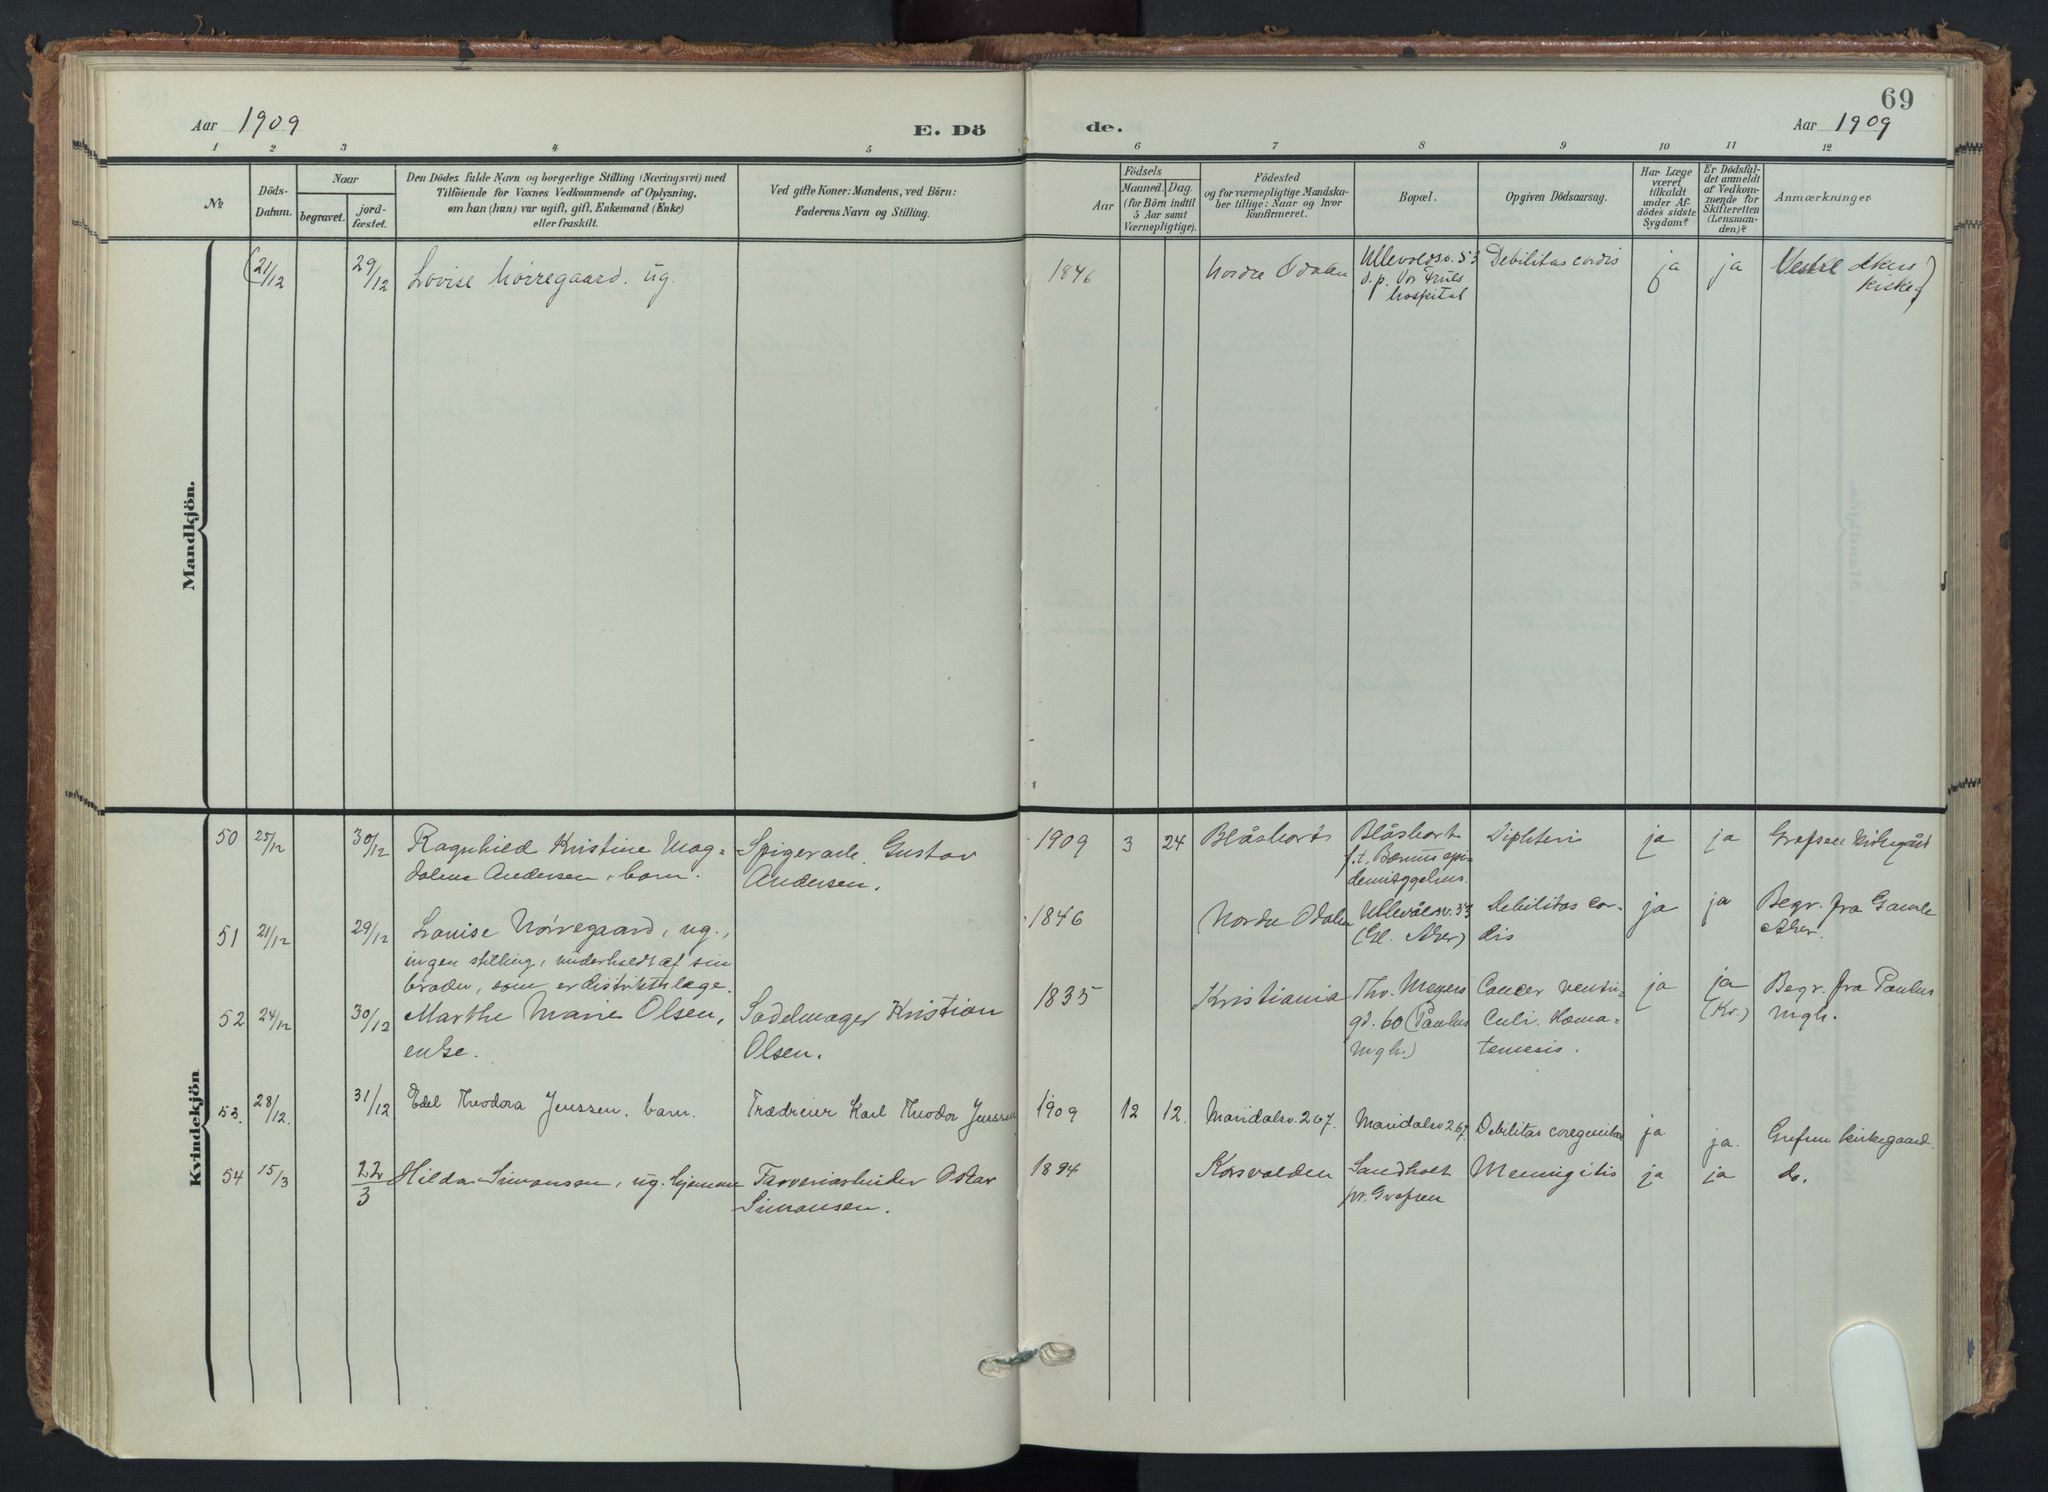 Aar 1909
E. Dö
de.
69
Aar 1909
1 2 3 4 5 6 7 8 9 10 11 12
№
Döds-
Datum.
Naar
begravet.
jord-
fæstet.
Den Dödes fulde Navn og borgerlige Stilling (Næringsvei) med
Tilföiende for Voxnes Vedkommende af Oplysning,
om han (hun) var ugift, gift, Enkemand (Enke)
eller fraskilt.
Ved gifte Koner: Mandens, ved Börn:
Faderens Navn og Stilling.
Födsels
Aar
Maaned. Dag.
(for Börn indtil
5 Aar samt
Værnepligtige).
Födested
og for værnepligtige Mandska-
ber tillige: Naar og hvor
konfirmeret.
Bopæl.
Opgiven Dödsaarsag.
Har Læge
været
tilkaldt
under Af-
dödes sidste
Sygdom?
Er Dödsfal-
det anmeldt
af Vedkom-
mende for
Skifteretten
(Lensman-
den)?
Anmærkninger
Mandkjön.
(21/12 29/12 Lovise Nörregaard. ug. 1846 Nordre Odalen Ullevoldsv. 53 Debilitas cordis ja ja Vestre Akers
d. p. Vor Frues
hospital
kirkeg)
Kvindekjön
50 25/12 30/12 Ragnhild Kristine Mag- Spigerarb. Gustav 1909 3 24 Blåskort Diphteri ja ja Grefsen kirkegård
dalene Andersen, barn. Andersen.
Blåskort
f.t. Bærums epi-
demisygehus.
51 21/12 29/12 Louise Nörregaard, ug., 1846 Nordre Odalen Ullevålsv. 53 Debilitas cor- ja ja Begr. fra Gamle
ingen stilling, underholdt af sin (Gl. Aker) dis Aker.
broder, som er distriktslæge.
52 24/12 30/12 Marthe Marie Olsen, Sadelmager Kristian 1835 Kristiania Thv. Meyers Cancer ventri- ja ja Begr. fra Paulus
enke. Olsen. gd. 60 (Paulus culi. Hæma- (Kr.) mgh.
mgh.) temesis.
53. 28/12. 31/12 Edel Theodora Jenssen, barn. Trædreier Karl Theodor Jenssen 1909 12 12. Maridalsv. 267. Maridalsv 267. Debilitas congenitas ja ja. Grefsen kirkegaard.
54 15/3 22/3 Hilda Simonsen, ug. hjemme Farveriarbeider Oskar 1894 Korsvolden Sandholt Meningitis ja ja do.
Simonsen. pr. Grefsen